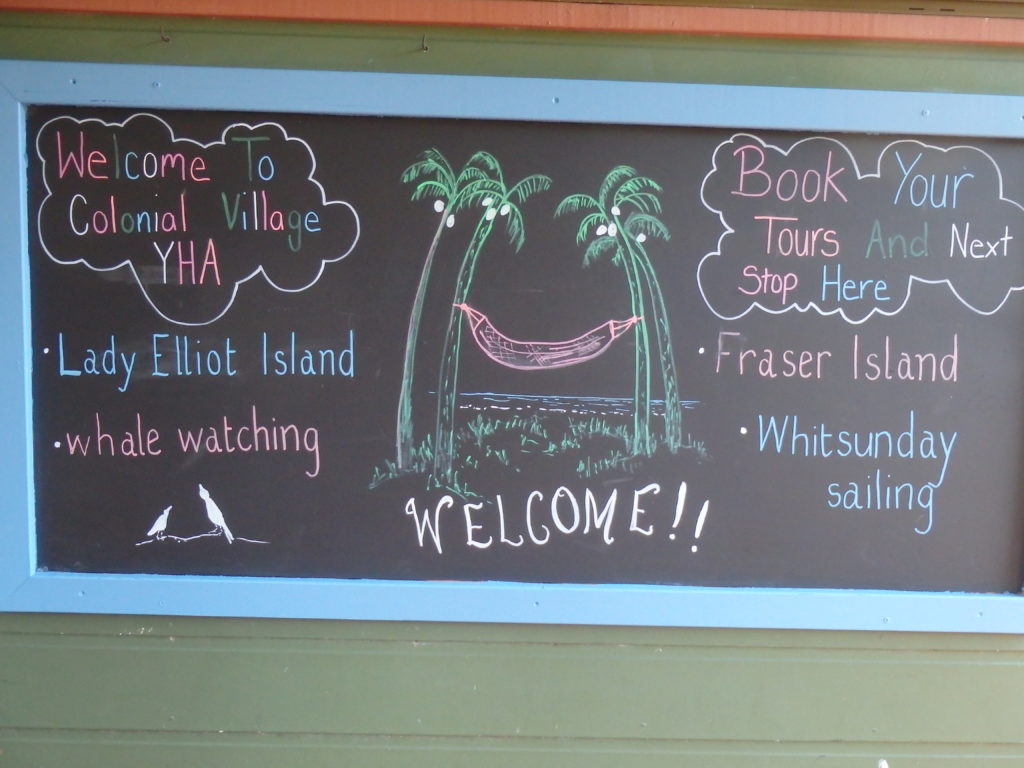 Welcome To
Colonial Village
YHA
· Lady Elliot Island
· whale watching
WELCOME!!
Book Your
Tours And Next
Stop Here
· Fraser Island
· Whitsunday
sailing